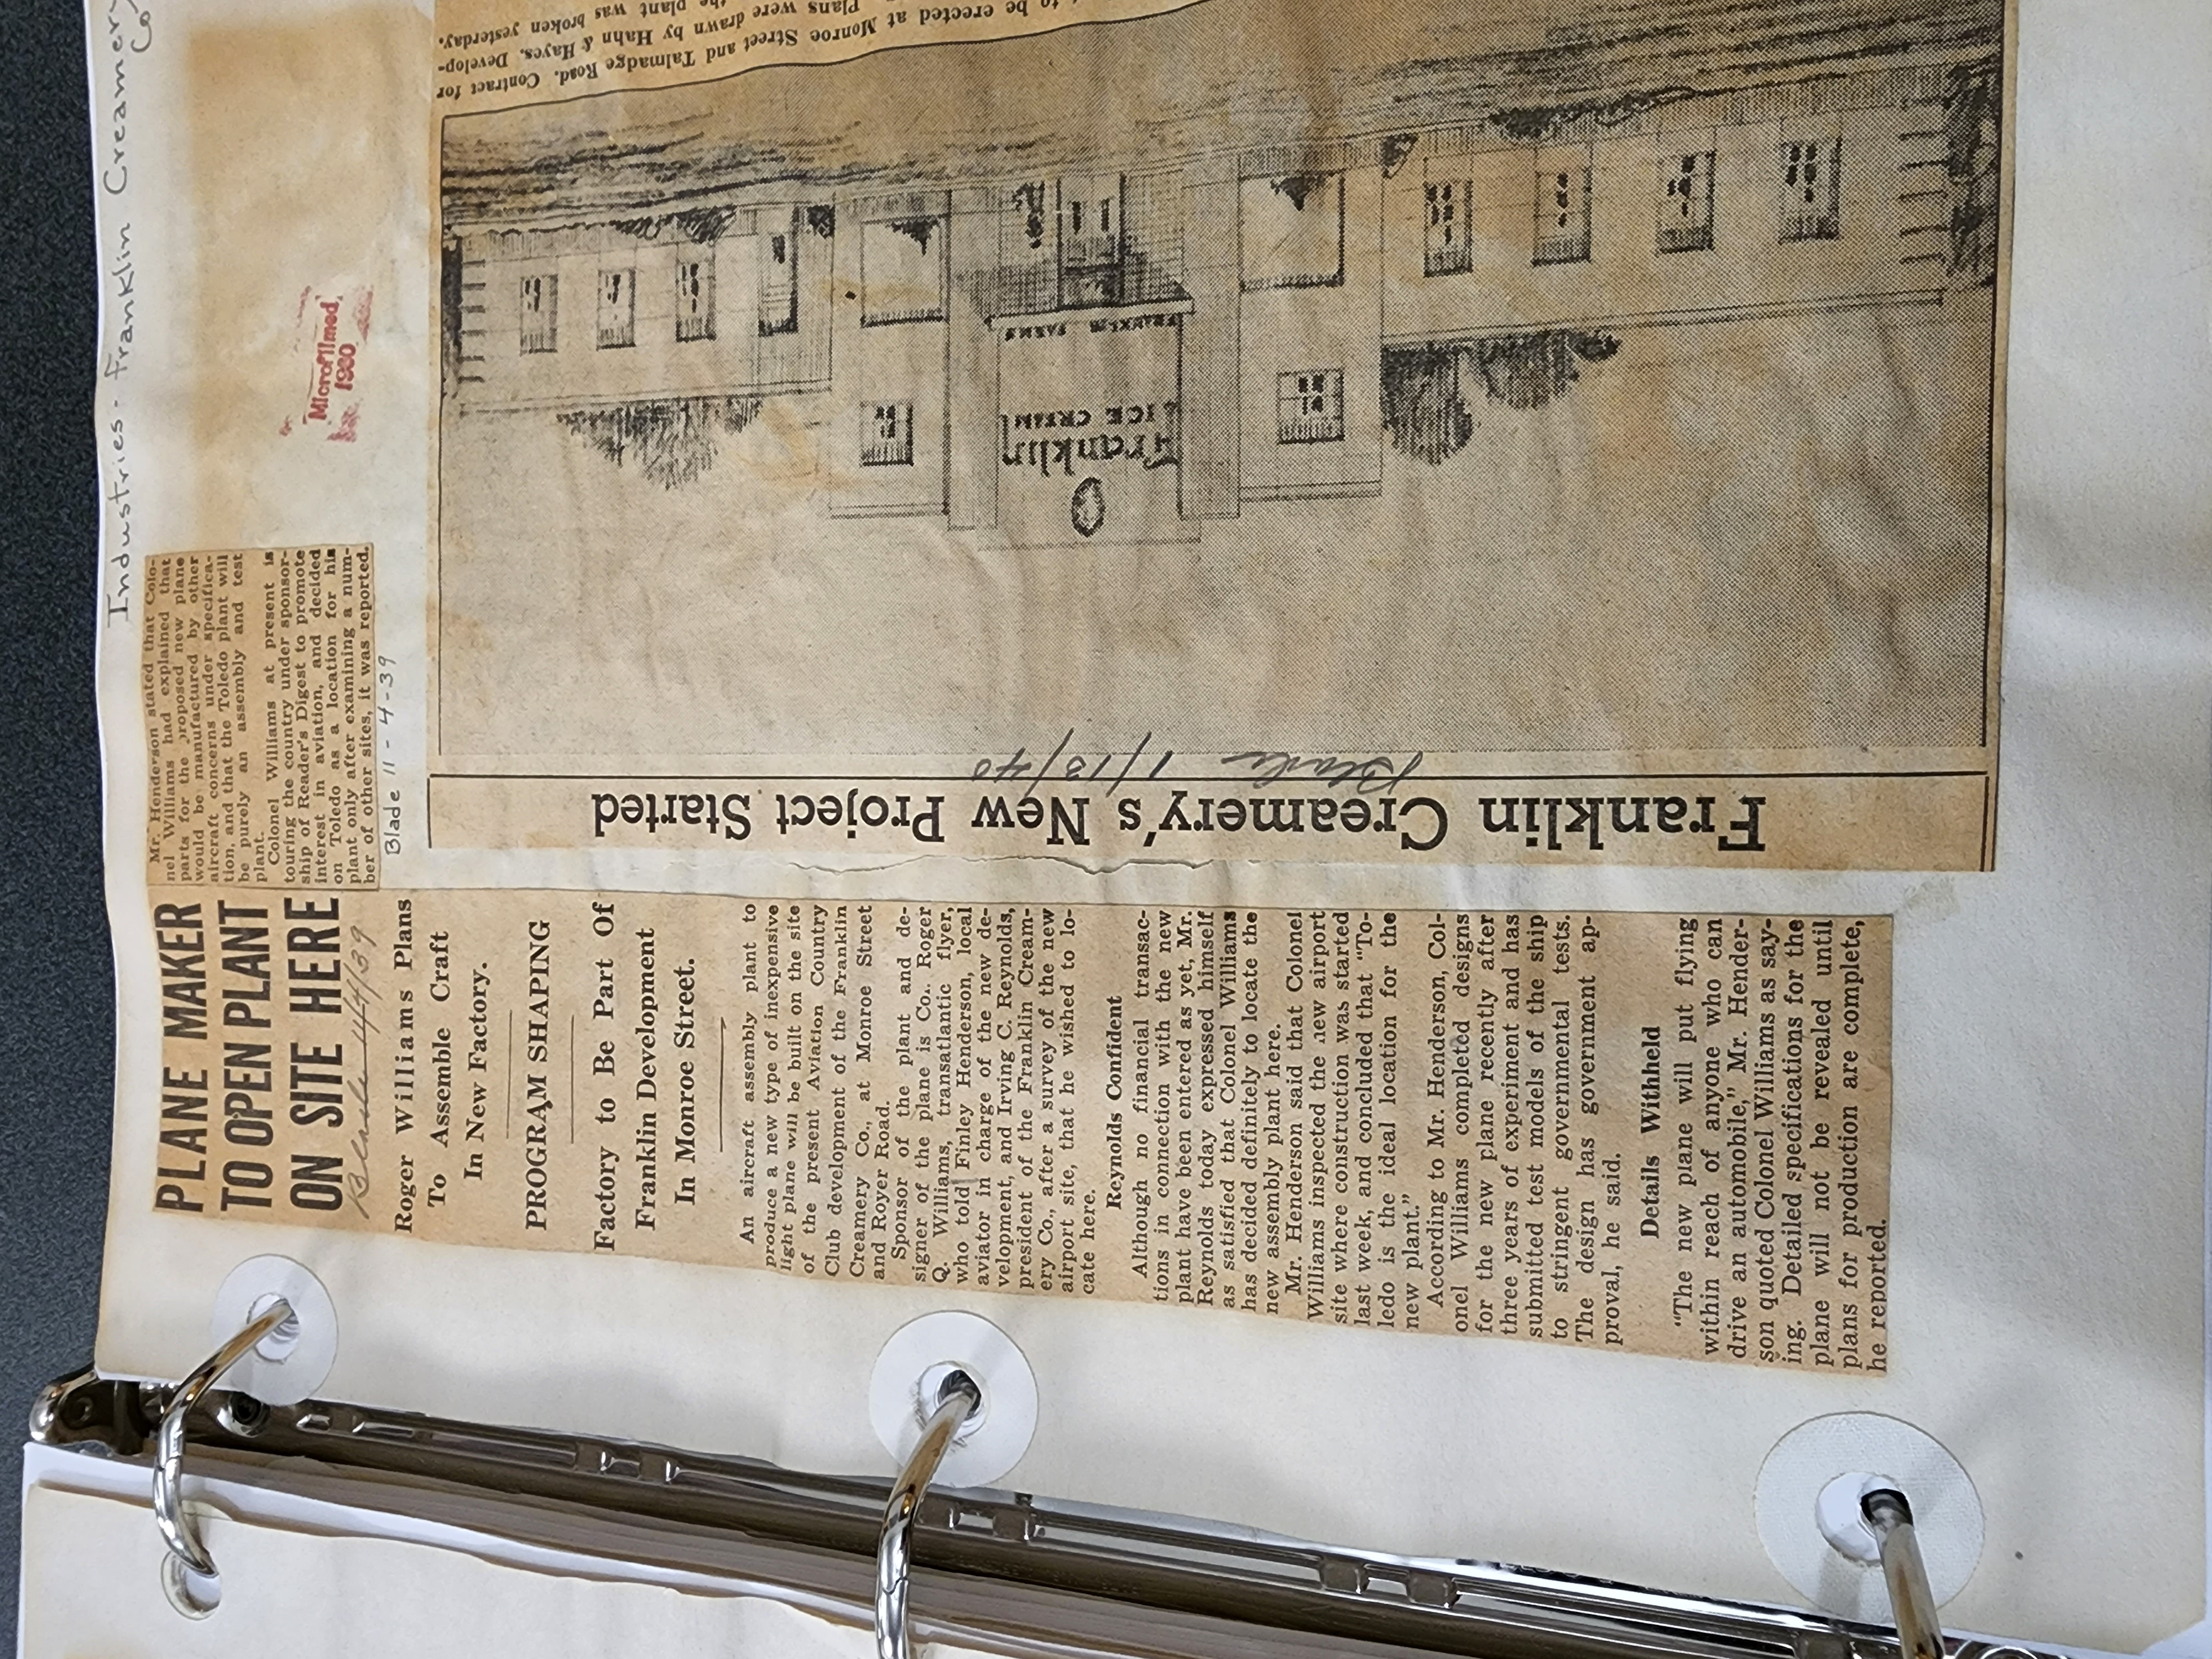 Industries - Franklin Creamery
Co
PLANE MAKER
TO OPEN PLANT
ON SITE HERE
Blade 11/4/39
Roger Williams Plans
To Assemble Craft
In New Factory.
PROGRAM SHAPING
Factory to Be Part Of
Franklin Development
In Monroe Street.
An aircraft assembly plant to
produce a new type of inexpensive
light plane will be built on the site
of the present Aviation Country
Club development of the Franklin
Creamery Co., at Monroe Street
and Royer Road.
Sponsor of the plant and de-
signer of the plane is Co.. Roger
Q. Williams, transatlantic flyer,
who told Finley Henderson, local
aviator in charge of the new de-
velopment, and Irving C. Reynolds,
president of the Franklin Cream-
ery Co., after a survey of the new
airport site, that he wished to lo-
cate here.
Reynolds Confident
Although no financial transac-
tions in connection with the new
plant have been entered as yet, Mr.
Reynolds today expressed himself
as satisfied that Colonel Williams
has decided definitely to locate the
new assembly plant here.
Mr. Henderson said that Colonel
Williams inspected the new airport
site where construction was started
last week, and concluded that "To-
ledo is the ideal location for the
new plant."
According to Mr. Henderson, Col-
onel Williams completed designs
for the new plane recently after
three years of experiment and has
submitted test models of the ship
to stringent governmental tests.
The design has government ap-
proval, he said.
Details Withheld
"The new plane will put flying
within reach of anyone who can
drive an automobile," Mr. Hender-
son quoted Colonel Williams as say-
ing. Detailed specifications for the
plane will not be revealed until
plans for production are complete,
he reported.
Mr. Henderson stated that Colo-
nel Williams had explained that
parts for the proposed new plane
would be manufactured by other
aircraft concerns under specifica-
tion, and that the Toledo plant will
be purely an assembly and test
plant.
Colonel Williams at present is
touring the country under sponsor-
ship of Reader's Digest to promote
interest in aviation, and decided
on Toledo as a location for his
plant only after examining a num-
ber of other sites, it was reported.
Blade 11-4-39
Microfilmed
1980
Franklin Creamery's New Project Started
Blade 1/13/40
Franklin
ICE CREAM
FRANKLIN FARMS
to be erected at Monroe Street and Talmadge Road. Contract for
Plans were drawn by Hahn & Hayes. Develop-
the plant was broken yesterday.